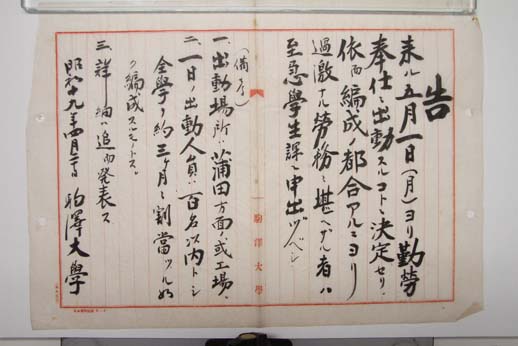 告
来ル五月一日(月)ヨリ勤労
奉仕ニ出動スルコトニ決定セリ、
依而編成ノ都合アルニヨリ
過激ナル労務ニ堪ヘザル者ハ
至急學生課ニ申出ヅベシ
(備考)
一、出動場所ハ蒲田方面ノ或工場、
二、一日ノ出動人員ハ百名以内トシ
全學ヲ約三ヶ月ニ割當ツル如
ク編成スルモノトス。
三、詳細ハ追而発表ス
昭和十九年四月二 日 駒澤大學
駒澤大學